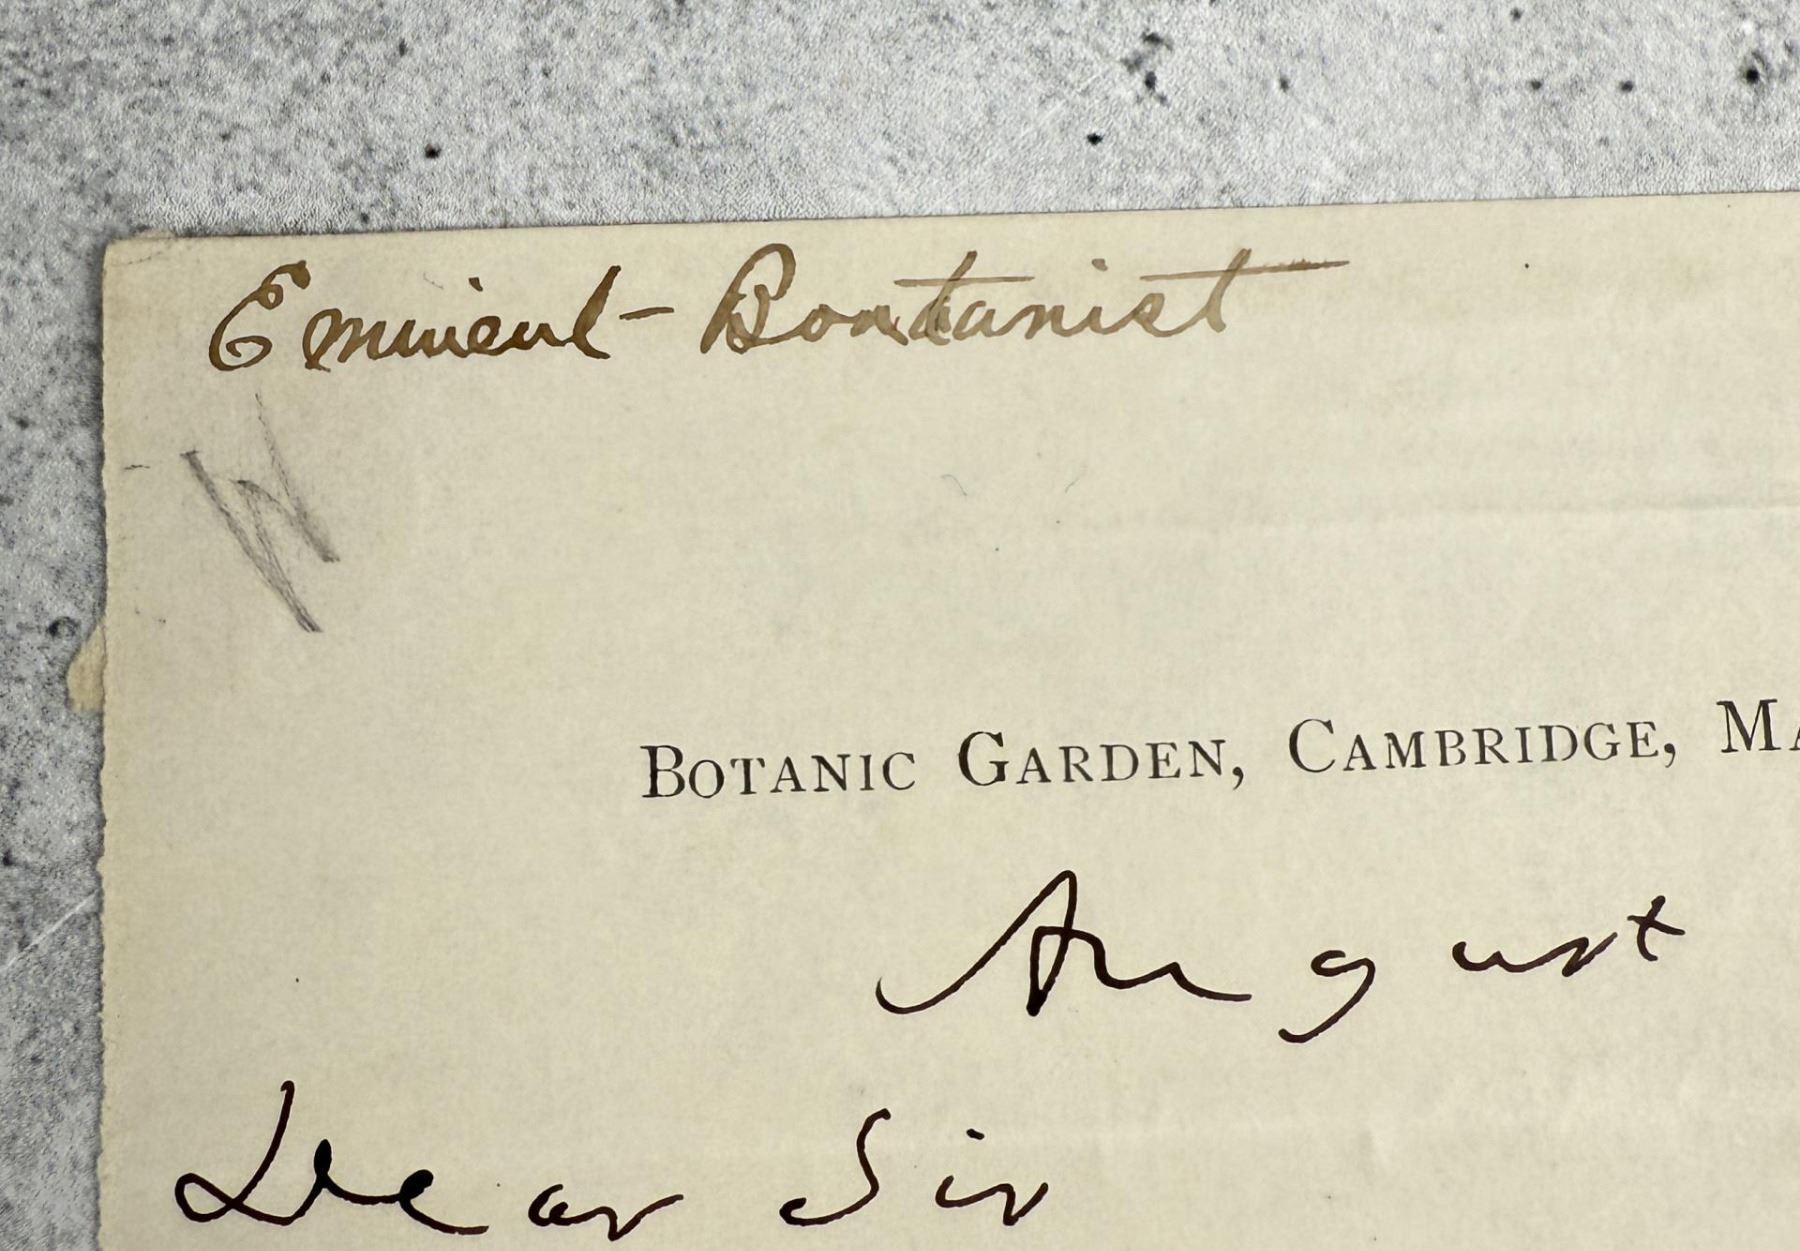 Eminent - Bontanist
BOTANIC GARDEN, CAMBRIDGE, MA
August
Dear Sir